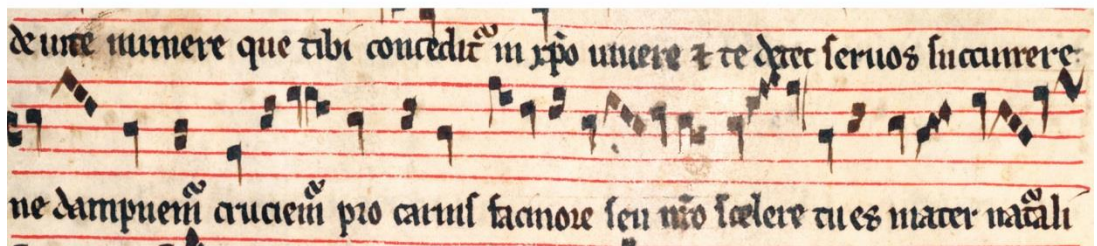 de uite munere que tibi concedit᷑ in xp̄o uiuere ⁊ te decet seruos succurrere
ne dampnem᷑ cruciem᷑ pro carnis facinore seu nr̄o scelere tu es mater nat᷑ali